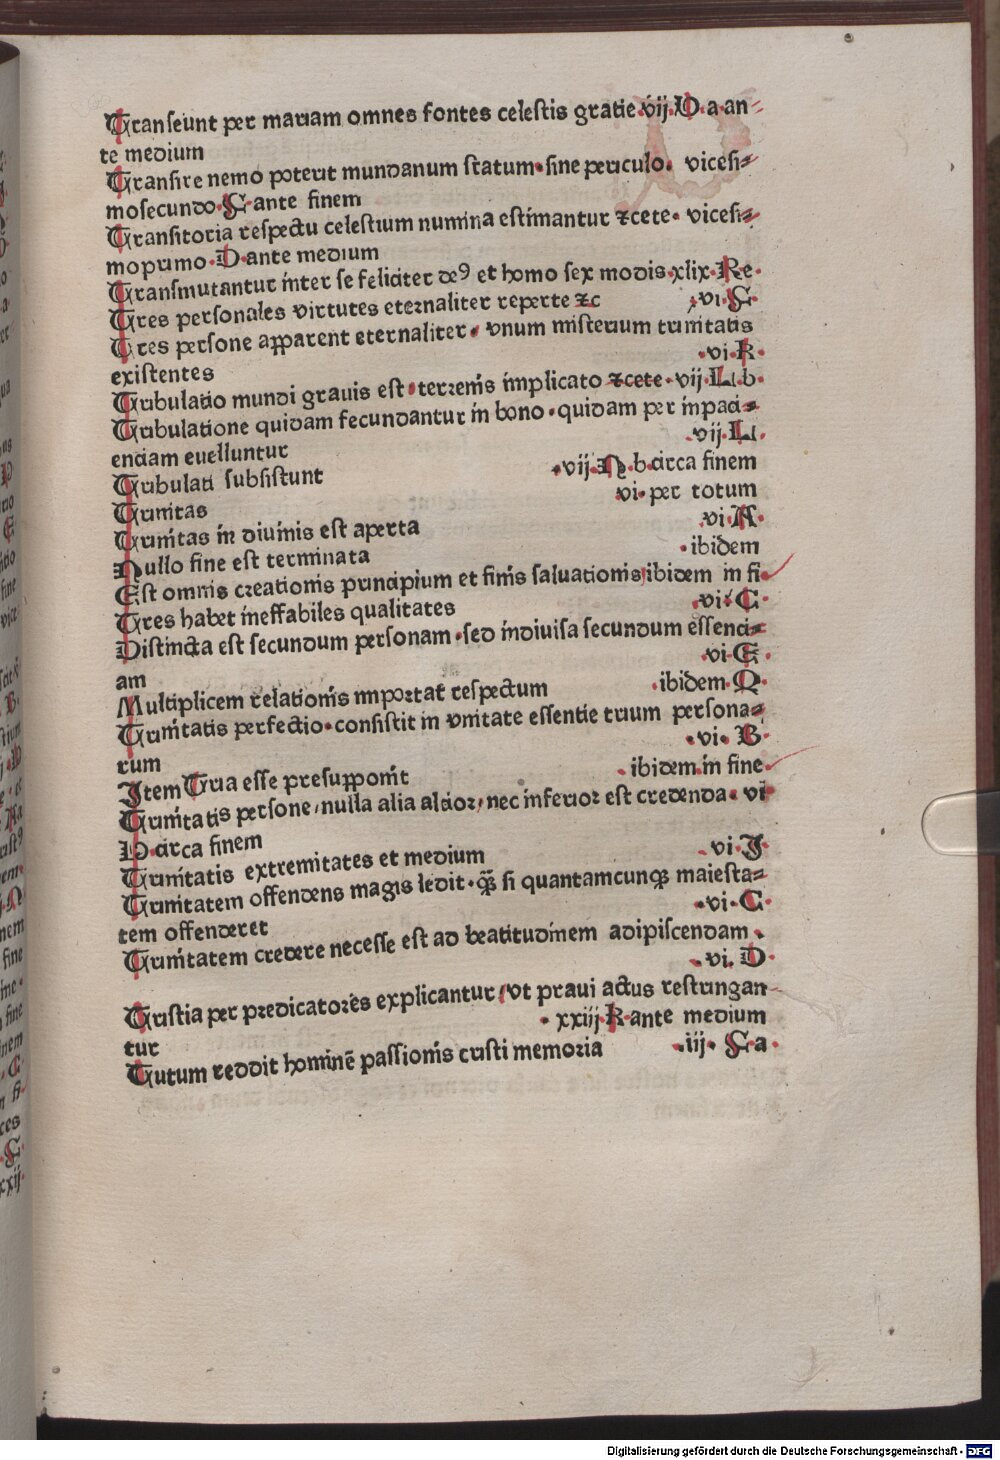 Transeunt per mariam omnes fontes celestis gratie·vij·D·a·an⸗
te medium
Transire nemo poterit mundanum statum·sine periculo· vicesi⸗
mosecundo·F·ante finem
Transitoria respectu celestium numina estimantur ⁊cete· vicesi⸗
moprimo·D·ante medium
Transmutantur inter se feliciter deꝰ et homo sex modis·xlix·Re·
Tres personales virtutes eternaliter reperte ⁊c ·vi·F·
Tres persone apparent eternaliter· vnum misterium trinitatis
existentes ·vi·R·
Tribulatio mundi grauis est·terrenis implicato ⁊cete·vij·L·b·
Tribulatione quidam fecundantur in bono·quidam per impaci⸗
enciam euelluntur ·vij·L·
Tribulati subsistunt ·vij·N·b·circa finem
Trinitas vi·per totum
Trinitas in diuinis est aperta ·vi·A·
Nullo fine est terminata ·ibidem
Est omnis creationis principium et finis saluationis/ibidem in fi·
Tres habet ineffabiles qualitates ·vi·C·
Distincta est secundum personam·sed indiuisa secundum essenci⸗
am ·vi·E·
Multiplicem relationis importat respectum ·ibidem·Q·
Trinitatis perfectio·consistit in vnitate essentie trium persona⸗
rum ·vi·B·
Item Tria esse presupponit ·ibidem·in fine·
Trinitatis persone/nulla alia altior/nec inferior est credenda·vi·
D·circa finem
Trinitatis extremitates et medium ·vi·J·
Trinitatem offendens magis ledit·q̄ꝫ si quantamcunqꝫ maiesta⸗
tem offenderet ·vi·C·
Trinitatem credere necesse est ad beatitudinem adipiscendam·
·vi·D·
Tristia per predicatores explicantur/vt praui actus restringan⸗
tur ·xxiij·R·ante medium
Tutum reddit hominē passionis cristi memoria ·iij·F·a·
Digitalisierung gefördert durch die Deutsche Forschungsgemeinschaft - DFG